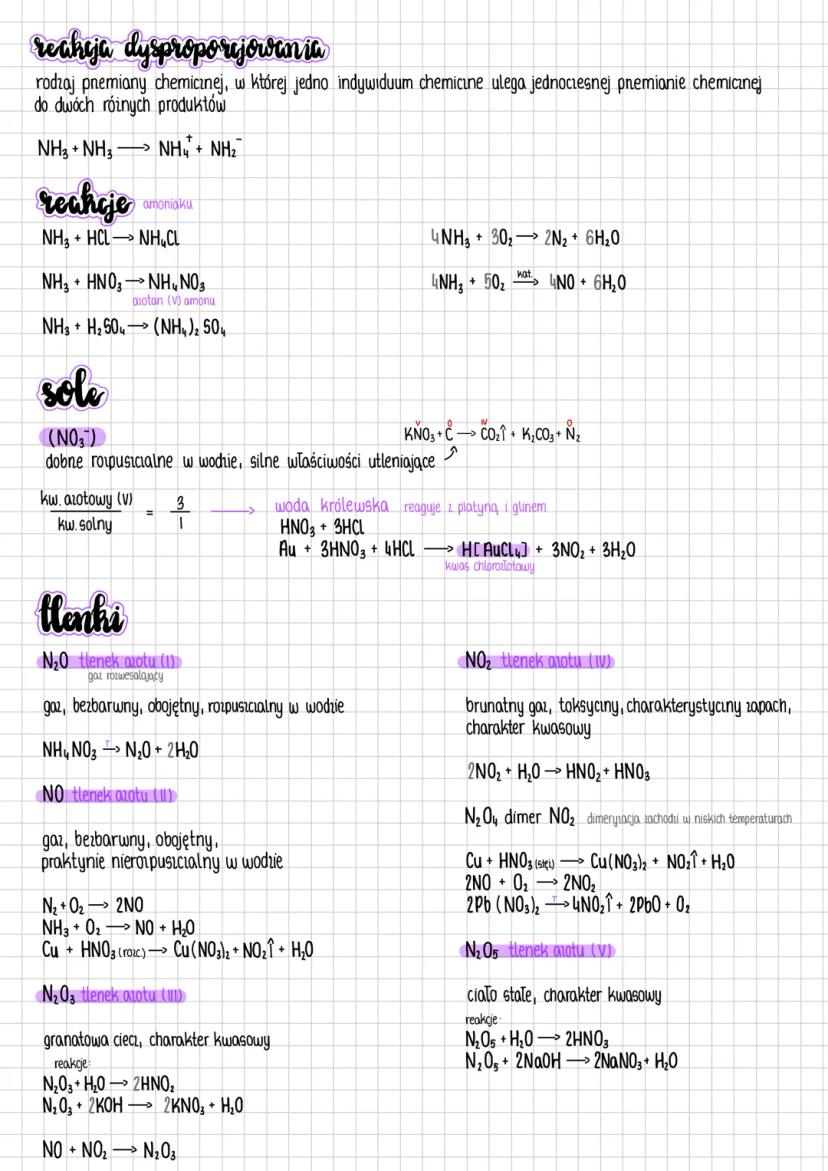 reakcja dysproporcjowania
rodzaj przemiany chemicznej, w której jedno indywiduum chemiczne ulega jednoczesnej przemianie chemicznej
do dwóch różnych produktów
NH₃ + NH₃ ⟶ NH₄⁺ + NH₂⁻
reakcje amoniaku
NH₃ + HCl ⟶ NH₄Cl
NH₃ + HNO₃ ⟶ NH₄NO₃
azotan (V) amonu
NH₃ + H₂SO₄ ⟶ (NH₄)₂SO₄
4NH₃ + 3O₂ ⟶ 2N₂ + 6H₂O
kat.
4NH₃ + 5O₂ ⟶ 4NO + 6H₂O
sole
(NO₃⁻)
V 0 IV 0
KNO₃ + C ⟶ CO₂↑ + K₂CO₃ + N₂
dobrze rozpuszczalne w wodzie, silne właściwości utleniające
kw. azotowy (V)
kw. solny
= 3/1 ⟶
woda królewska reaguje z platyną i glinem
HNO₃ + 3HCl
Au + 3HNO₃ + 4HCl ⟶ H[AuCl₄] + 3NO₂ + 3H₂O
kwas chlorozłotowy
tlenki
N₂O tlenek azotu (I)
gaz rozweselający
gaz, bezbarwny, obojętny, rozpuszczalny w wodzie
T
NH₄NO₃ ⟶ N₂O + 2H₂O
NO tlenek azotu (II)
gaz, bezbarwny, obojętny,
praktynie nierozpuszczalny w wodzie
N₂ + O₂ ⟶ 2NO
NH₃ + O₂ ⟶ NO + H₂O
Cu + HNO₃ (rozc.) ⟶ Cu(NO₃)₂ + NO₂↑ + H₂O
N₂O₃ tlenek azotu (III)
granatowa ciecz, charakter kwasowy
reakcje:
N₂O₃ + H₂O ⟶ 2HNO₂
N₂O₃ + 2KOH ⟶ 2KNO₃ + H₂O
NO + NO₂ ⟶ N₂O₃
NO₂ tlenek azotu (IV)
brunatny gaz, toksyczny, charakterystyczny zapach,
charakter kwasowy
2NO₂ + H₂O ⟶ HNO₂ + HNO₃
N₂O₄ dimer NO₂ dimeryzacja zachodzi w niskich temperaturach
Cu + HNO₃ (stęż) ⟶ Cu(NO₃)₂ + NO₂↑ + H₂O
2NO + O₂ ⟶ 2NO₂
T
2Pb(NO₃)₂ ⟶ 4NO₂↑ + 2PbO + O₂
N₂O₅ tlenek azotu (V)
ciało stałe, charakter kwasowy
reakcje:
N₂O₅ + H₂O ⟶ 2HNO₃
N₂O₅ + 2NaOH ⟶ 2NaNO₃ + H₂O